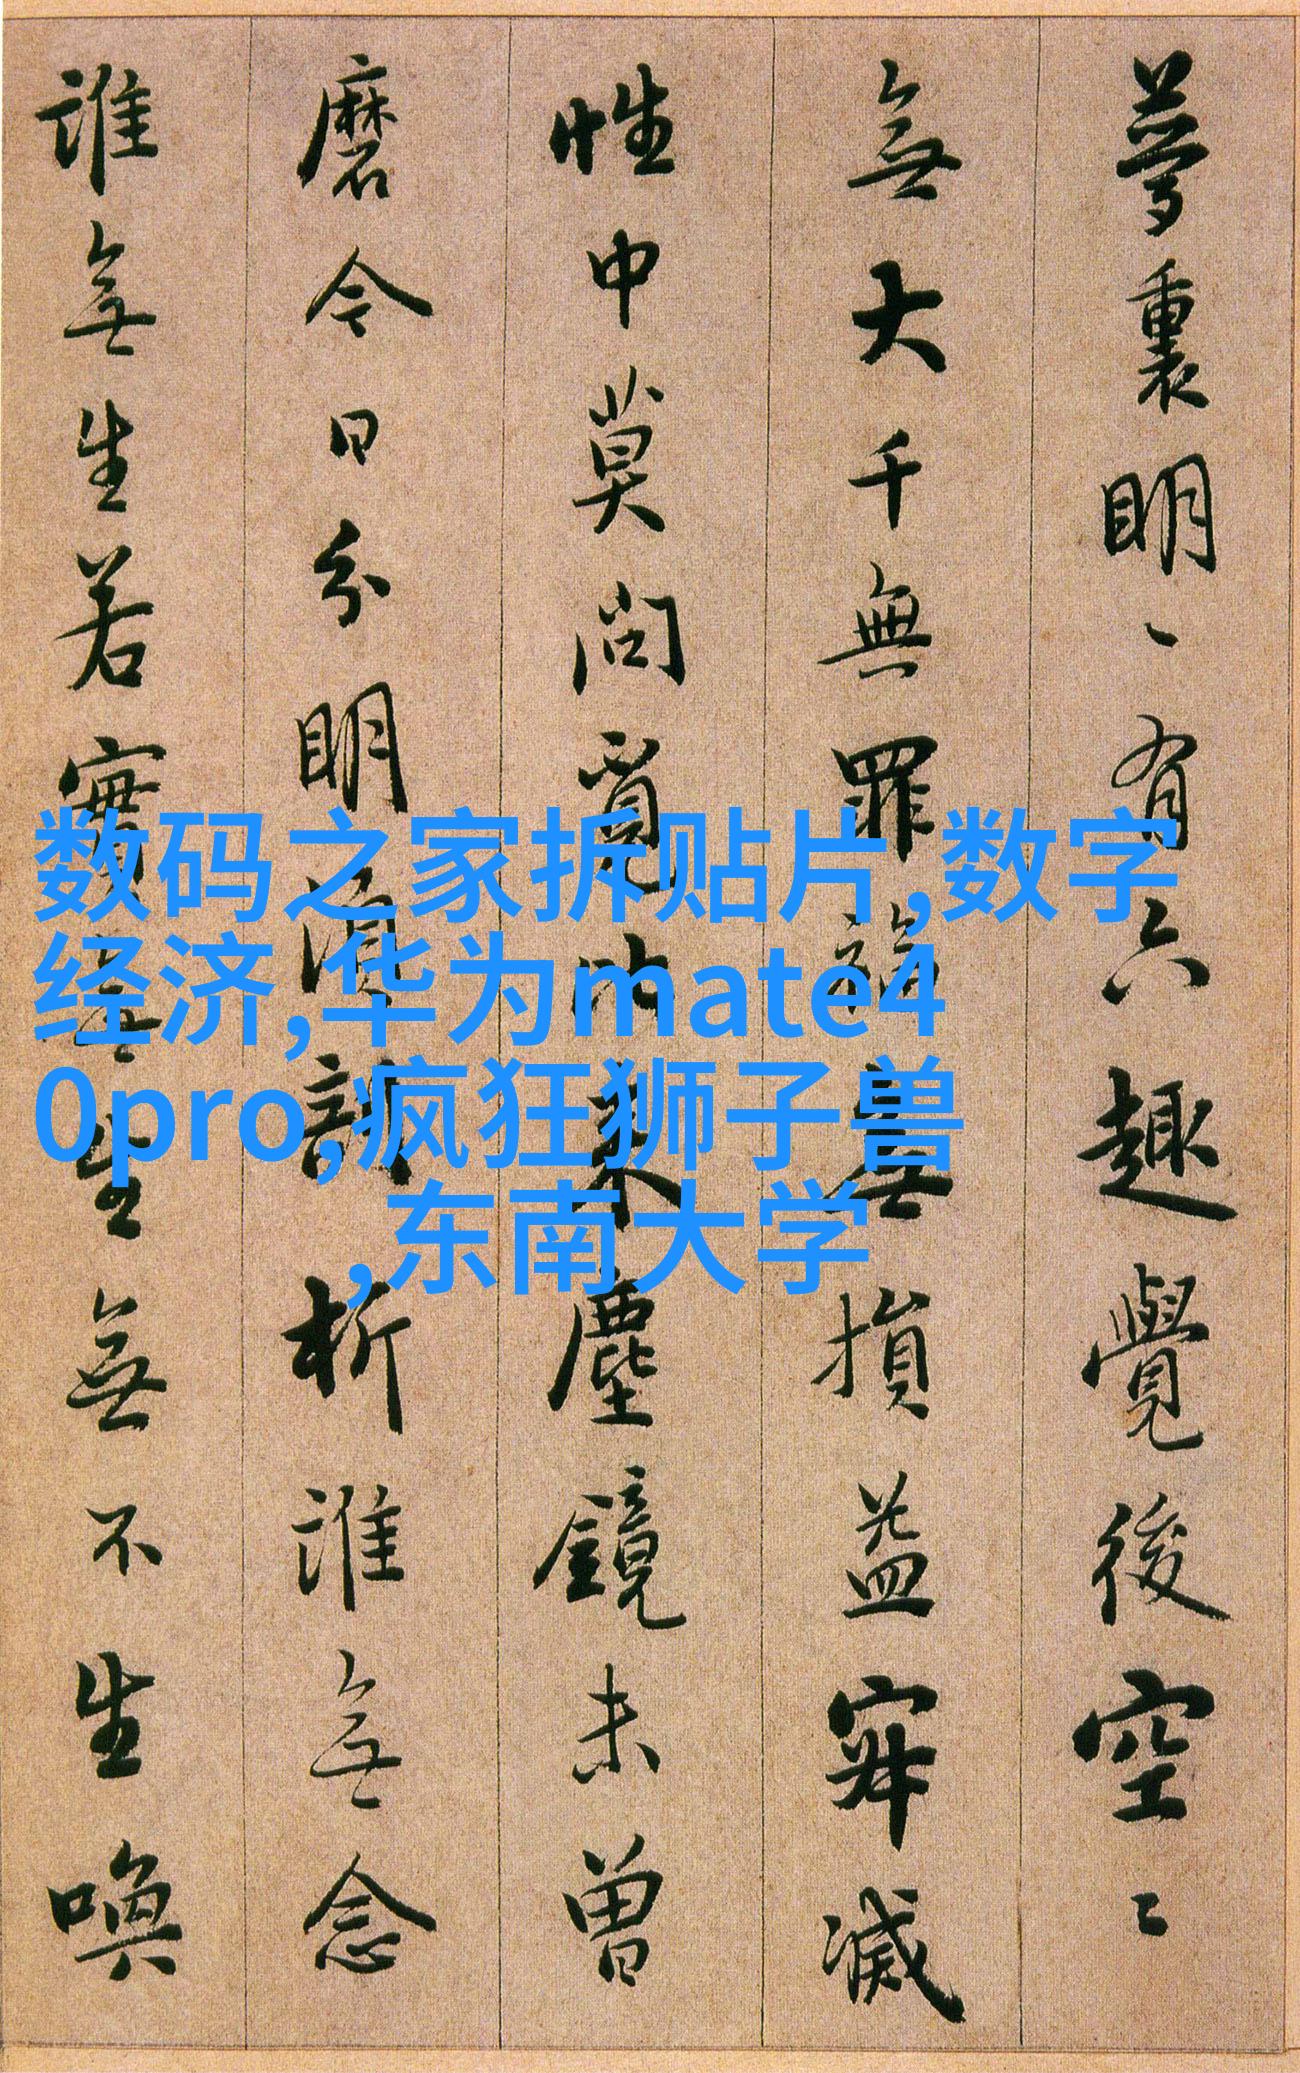 夢裏明〻有六趣覺後空〻
無大千無罪福無損益寂滅
性中莫問覓比來塵鏡未曾
磨今日分明須剖析誰無念
誰無生若實無生無不生喚
数码之家拆贴片,数字
经济,华为mate4
0pro,疯狂狮子兽
,东南大学